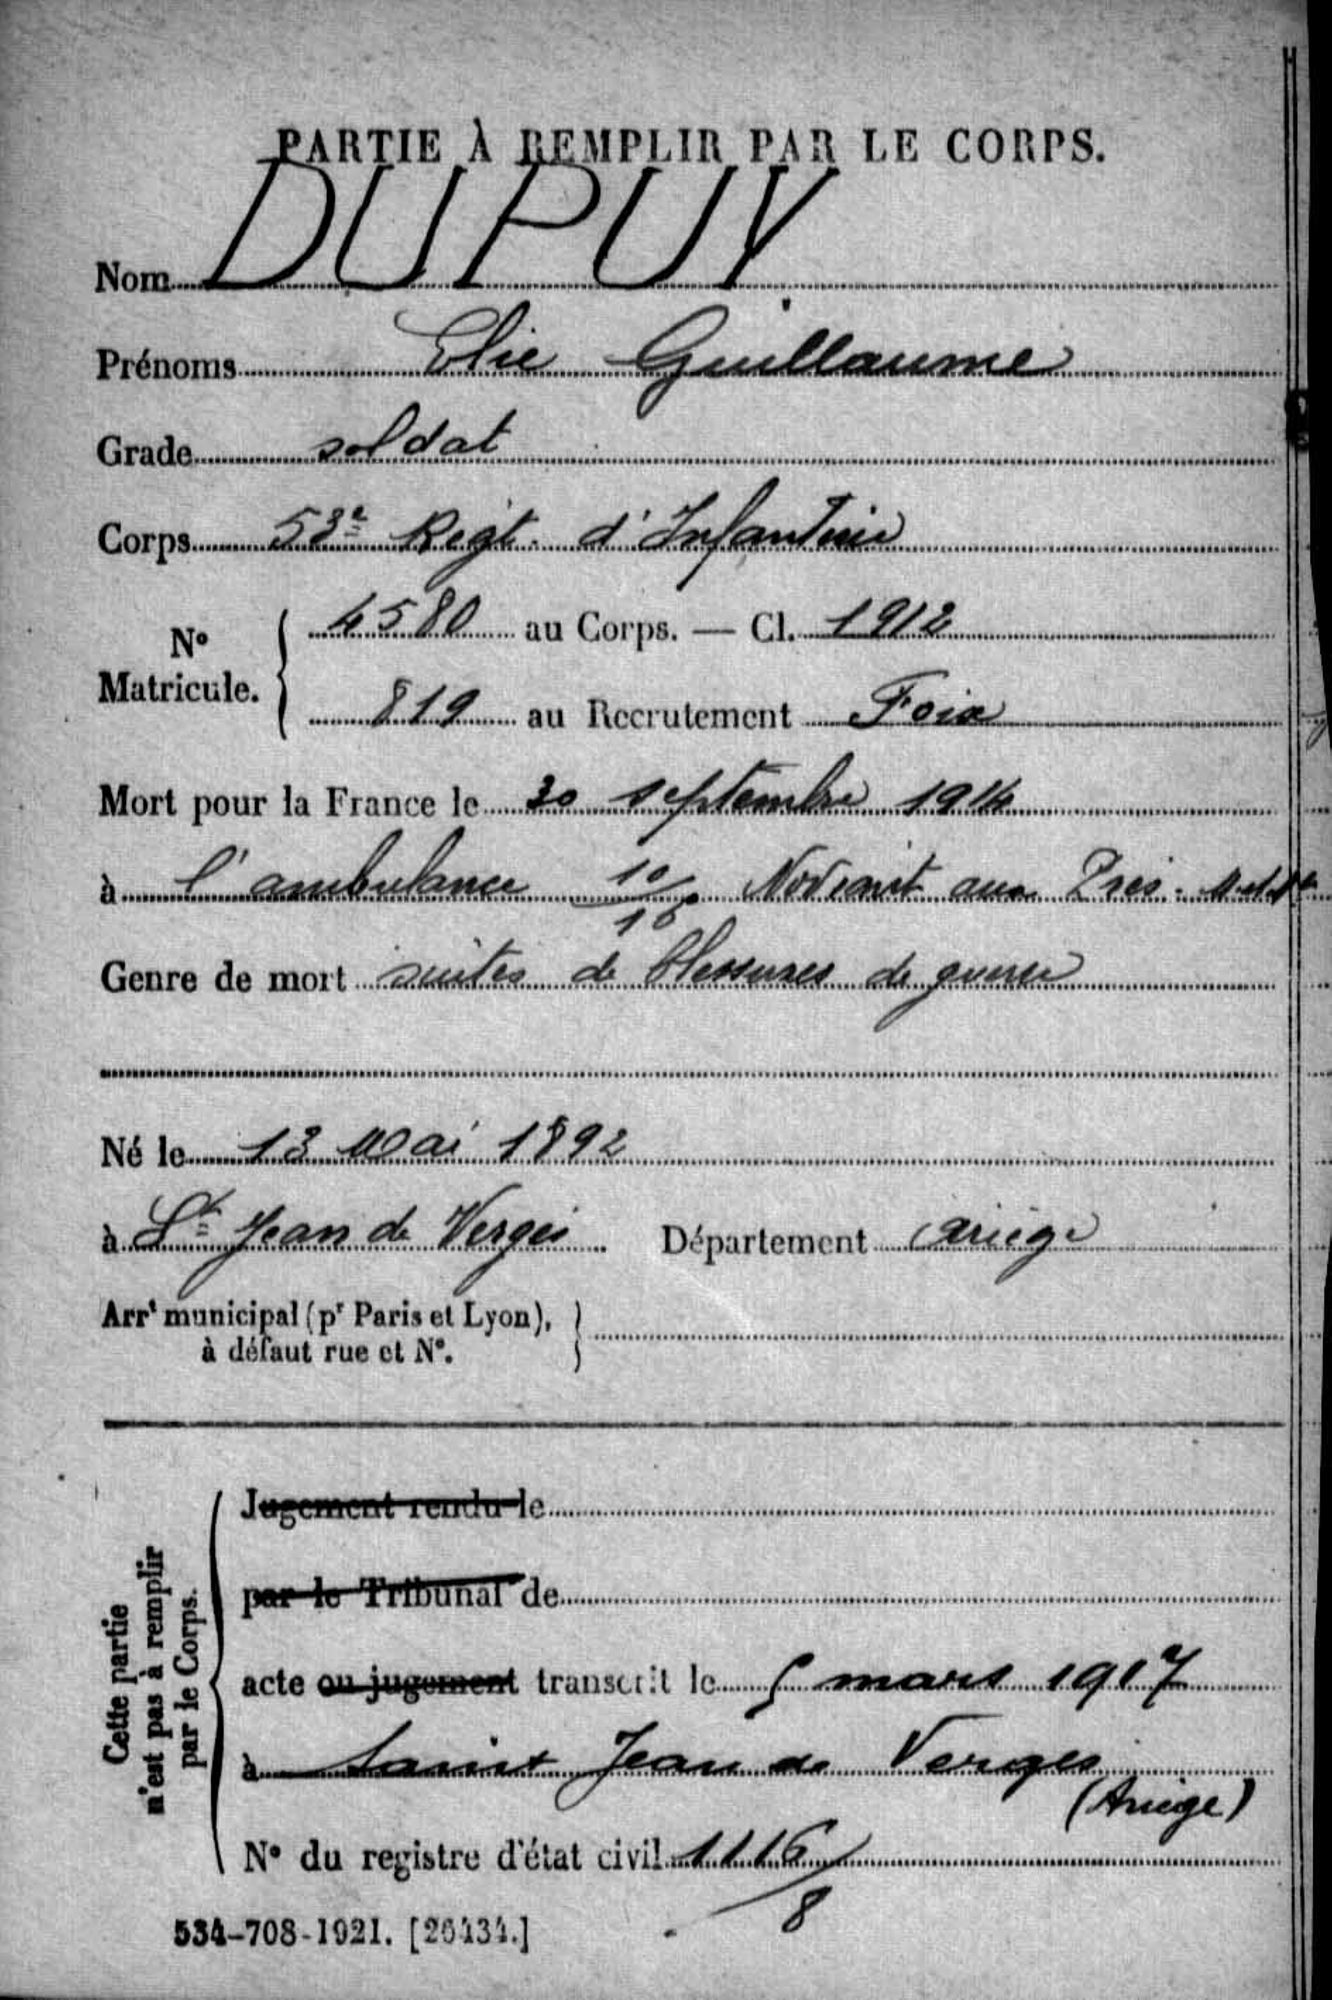 PARTIE À REMPLIR PAR LE CORPS.
Nom DUPUY
Prénoms Elie Guillaume
Grade soldat
Corps 53e Régt. d'Infanterie
N° Matricule. { 4580 au Corps. — Cl. 1912
819 au Recrutement Foix
Mort pour la France le 30 septembre 1914
à l'ambulance 10/16 Noviant aux Prés.
Genre de mort suites de blessures de guerre
Né le 13 Mai 1892
à St Jean de Verges Département Ariège
Arrt municipal (pr Paris et Lyon),
à défaut rue et N°.
Cette partie
n'est pas à remplir
par le Corps.
Jugement rendu le
par le Tribunal de
acte ou jugement transcrit le 5 mars 1917
à Saint Jean de Verges
(Ariège)
N° du registre d'état civil 1116/8
534-708-1921. [26434.]